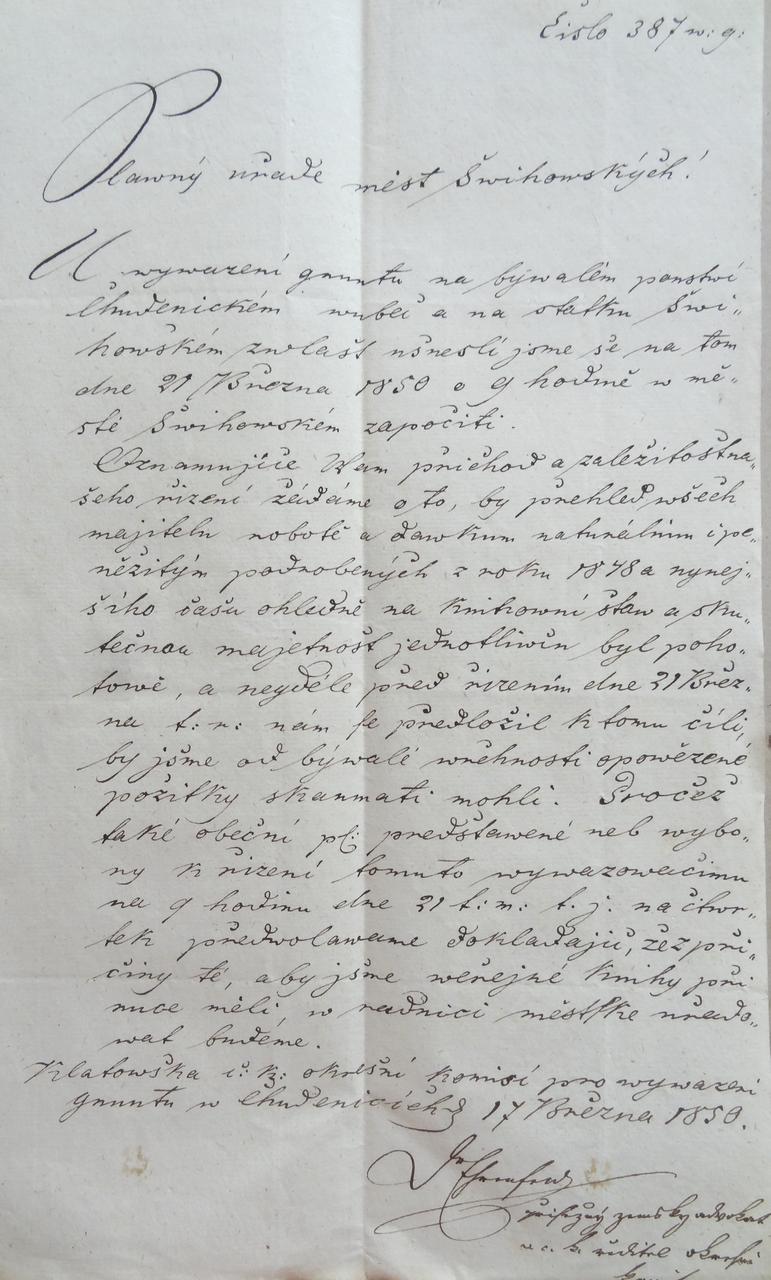 Čislo 387 w: g:
Slawný uřade měst Šwihowských!
K wywazení gruntu na bywalém panstwí
Chuďenickém wubec a na statku Šwi„
howském zwlašt usnesli jsme se na tom
dne 21 Března 1850 o 9 hodině w mě„
stě Šwihowském započiti.
Oznamujíce Wam přichod a zaležitost na„
šeho řizení žádáme o to, by přehled wšech
majitelu robotě a dawkum naturálním i pe„
něžitým podrobených z roku 1848 a nynej„
šího času ohledně na knihowní staw a sku„
tečnou majetnost jednotliwcu byl poho„
towě, a neyděle před řizením dne 21 Břez„
na t: r: nám se předložil k tomu cíli,
by jsme od býwalé wrchnosti opowězené
požitky skaumati mohli. Pročež
také obeční pl: předstawené neb wybo„
ry k řizení tomuto wywazowacimu
na 9 hodinu dne 21 t: m: t. j. na čtwr„
tek předwolawame dokladajíc, že z pří„
činy té, aby jsme weřejné knihy při
ruce měli, w radnici městske uřado„
wat budeme.
Klatowska c: k: okresní komisí pro wywazení
gruntu w Chudenicích 17 Března 1850.
Dr
přísežný zemsky adwokat
a c. k. ředitel okresní